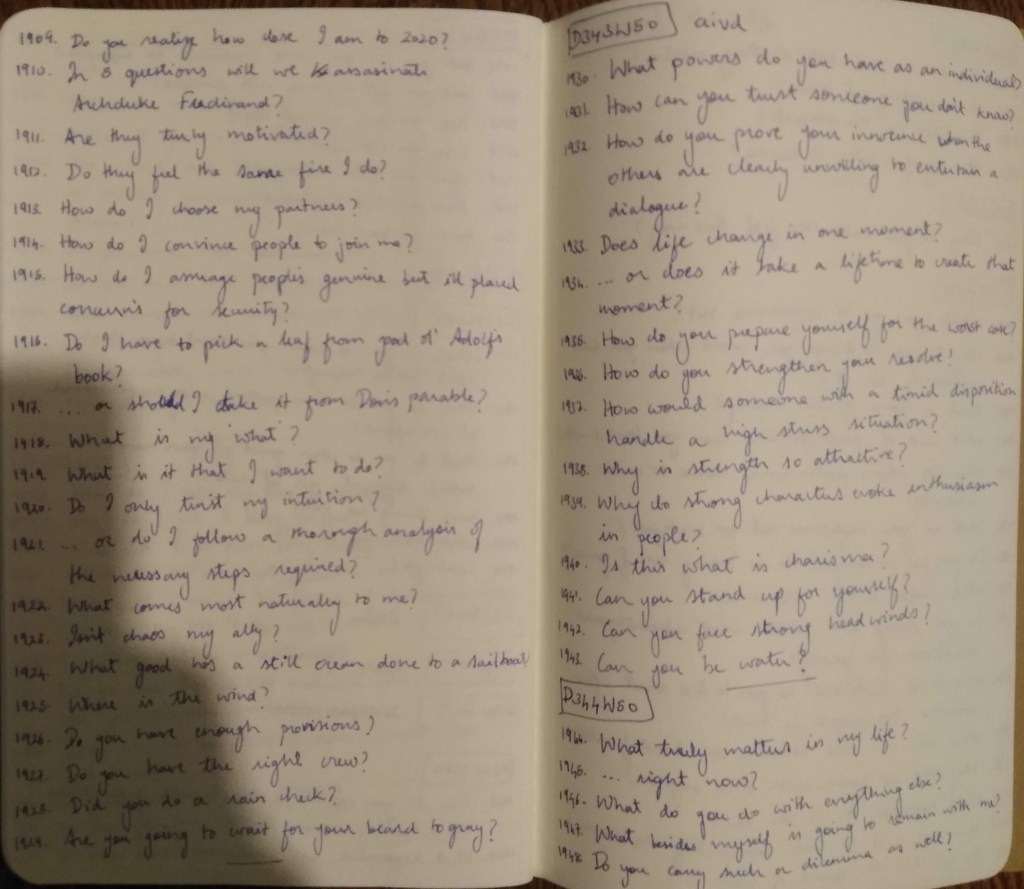 1909. Do you realize how close I am to 2020?
1910. In 5 questions will we assasinate
Archduke Ferdinand?
1911. Are they truly motivated?
1912. Do they feel the same fire I do?
1913. How do I choose my partners?
1914. How do I convince people to join me?
1915. How do I assuage people's genuine but ill placed
concerns for security?
1916. Do I have to pick a leaf from good ol' Adolf's
book?
1917. ... or should I take it from parable?
1918. What is my 'what'?
1919. What is it that I want to do?
1920. Do I only trust my intuition?
1921. ... or do I follow a thorough analysis of
the necessary steps required?
1922. What comes most naturally to me?
1923. Isn't chaos my ally?
1924. What good has a still ocean done to a sailboat?
1925. Where is the wind?
1926. Do you have enough provisions?
1927. Do you have the right crew?
1928. Did you do a rain check?
1929. Are you going to wait for your beard to gray?
D343W50 aivd
1930. What powers do you have as an individual?
1931. How can you trust someone you don't know?
1932. How do you prove your innocence when the
others are clearly unwilling to entertain a
dialogue?
1933. Does life change in one moment?
1934. ... or does it take a lifetime to create that
moment?
1935. How do you prepare yourself for the worst case?
1936. How do you strengthen your resolve?
1937. How would someone with a timid disposition
handle a high stress situation?
1938. Why is strength so attractive?
1939. Why do strong characters evoke enthusiasm
in people?
1940. Is this what is charisma?
1941. Can you stand up for yourself?
1942. Can you face strong headwinds?
1943. Can you be water?
D344W50
1944. What truly matters in my life?
1945. ... right now?
1946. What do you do with everything else?
1947. What besides myself is going to remain with me?
1948. Do you carry such a dilemma as well?